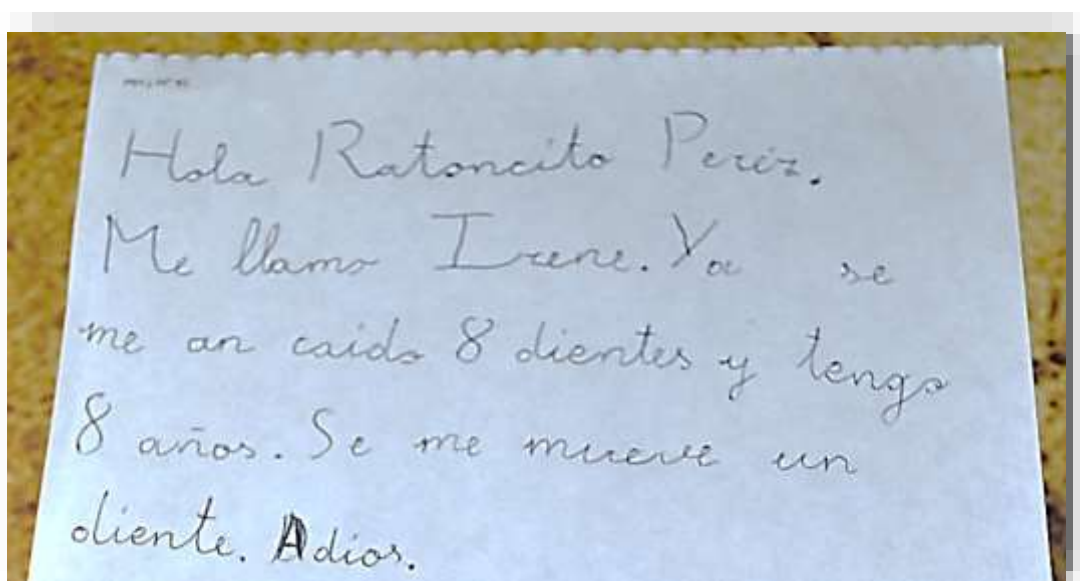 Hola Ratoncito Perez.
Me llamo Irene. Ya se
me an caido 8 dientes y tengo
8 años. Se me mueve un
diente. Adios.